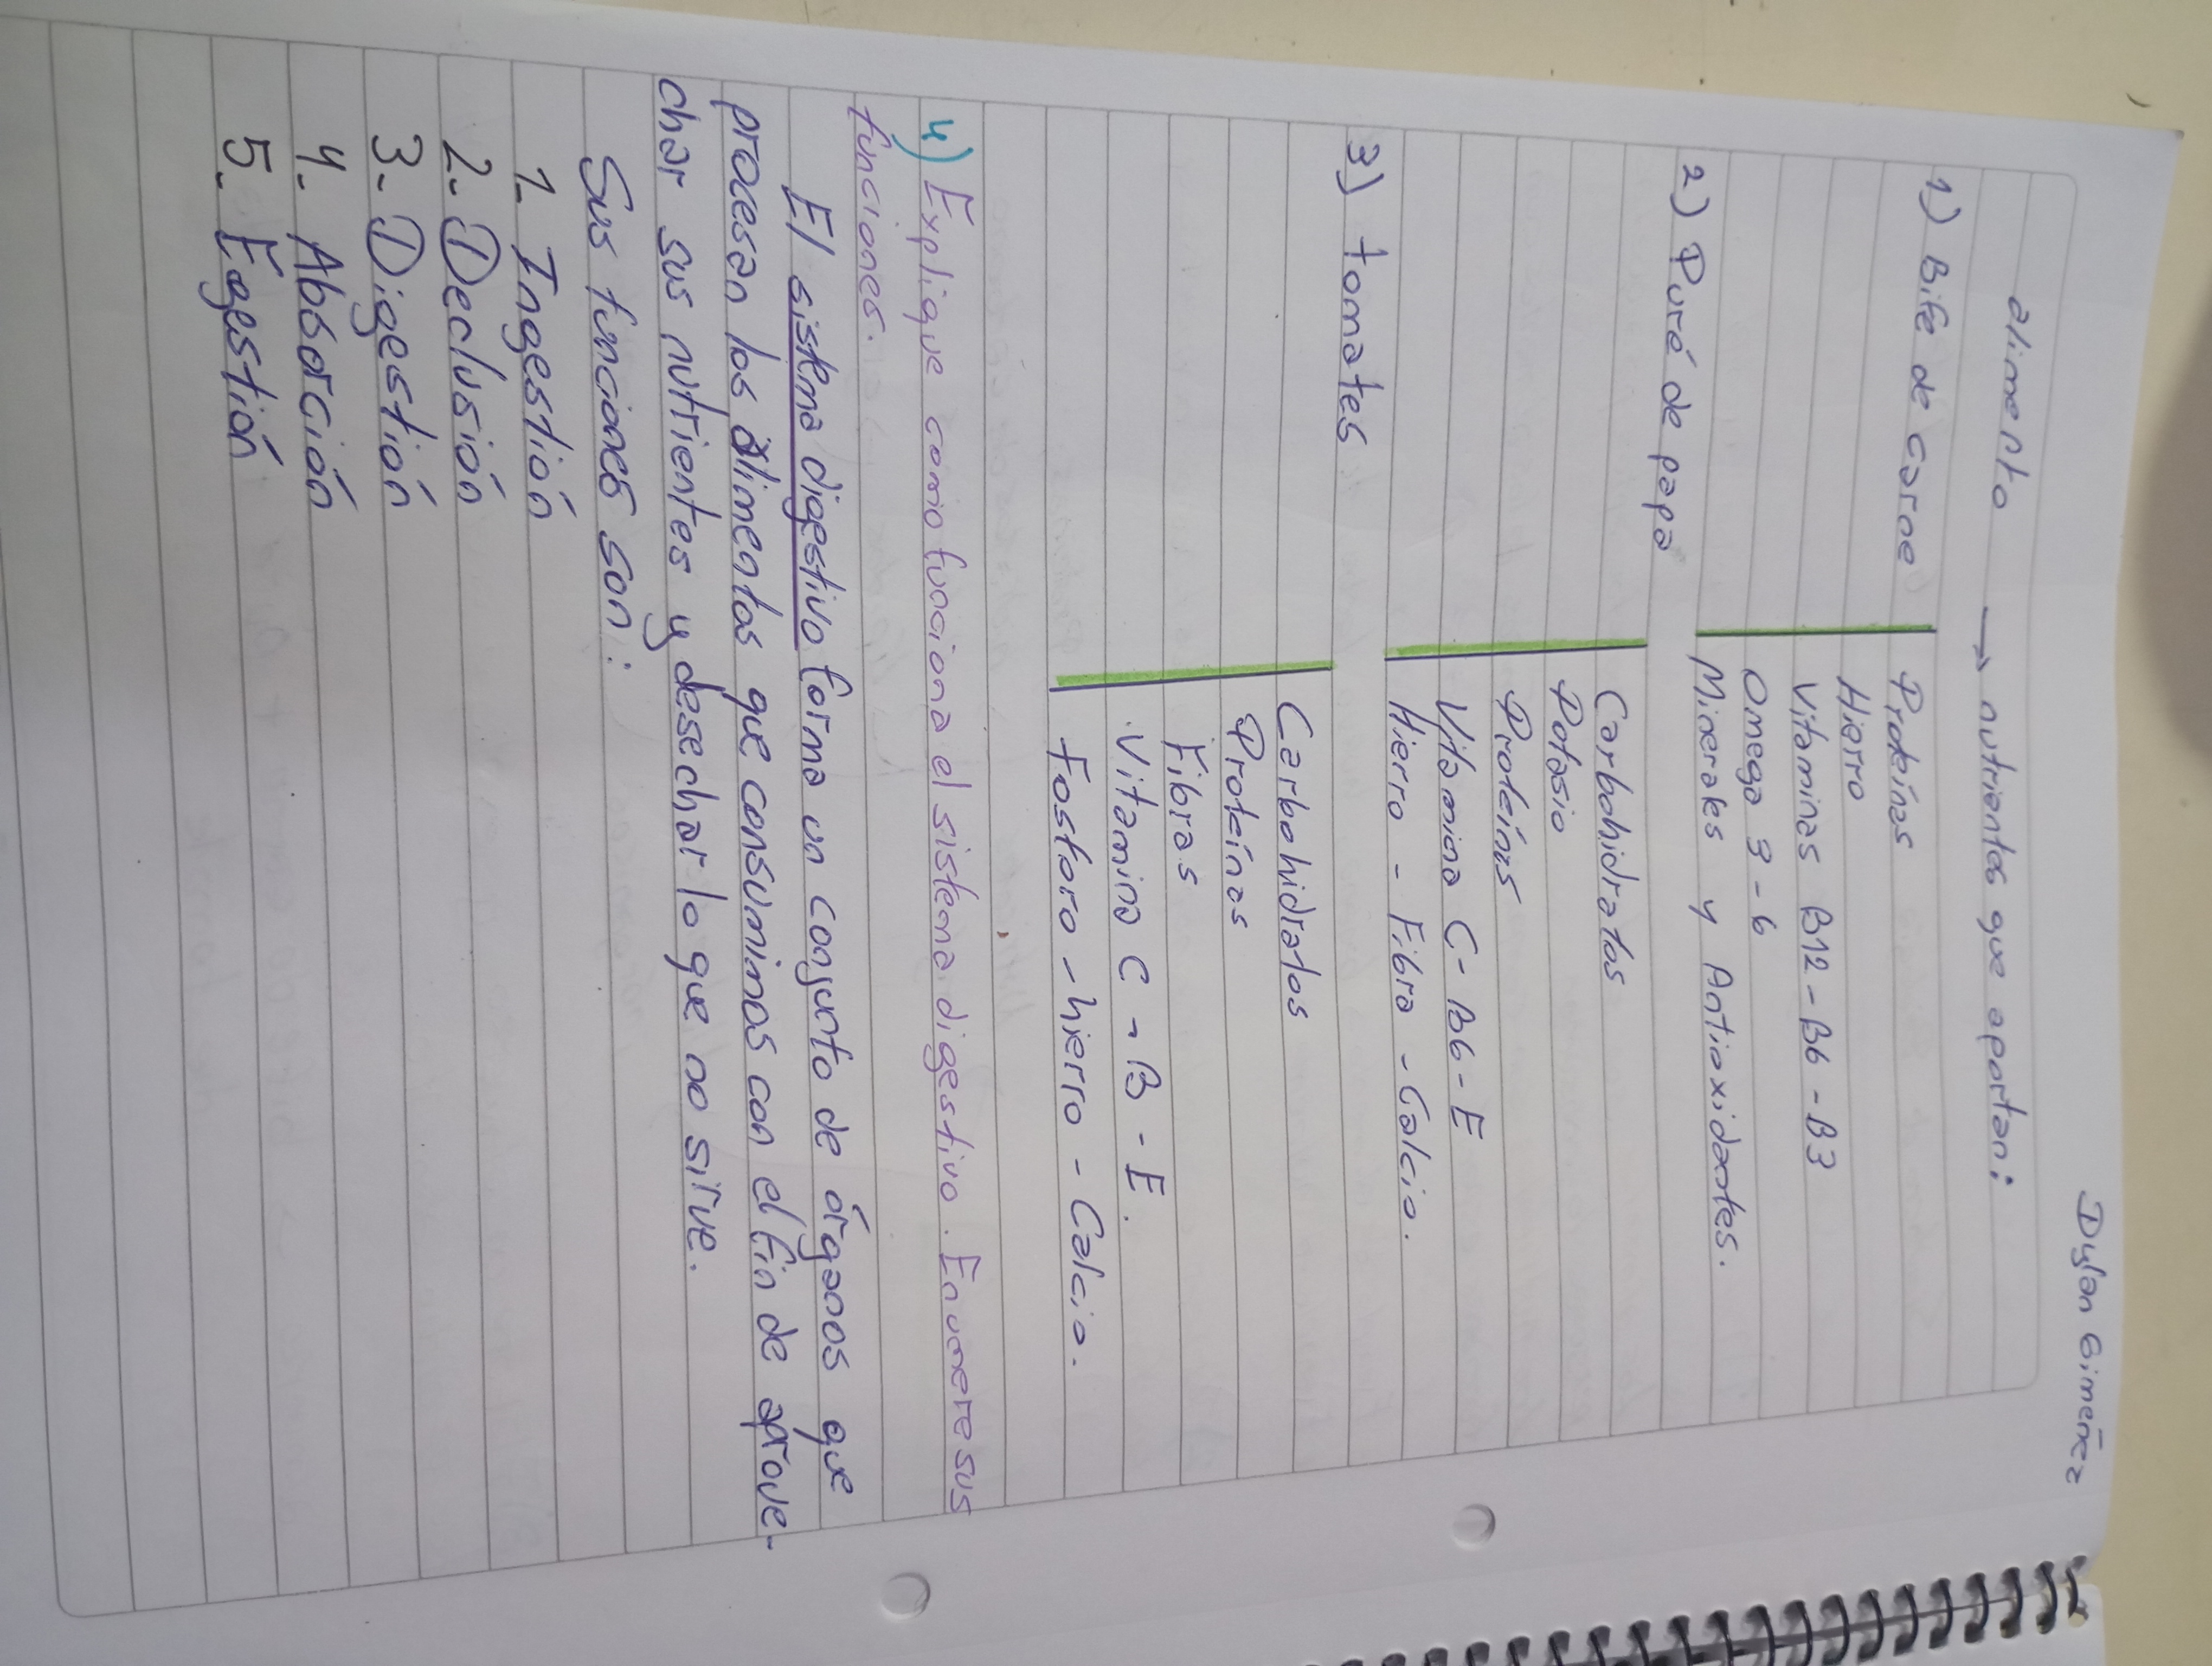 Dylan Gimenez
alimento → nutrientes que aportan:
1) Bife de carne
Proteínas
Hierro
Vitaminas B12 - B6 - B3
Omega 3 - 6
Minerales y Antioxidantes.
2) Puré de papa
Carbohidratos
Potasio
Proteínas
Vitamina C - B6 - E
Hierro - Fibra - Calcio.
3) tomates
Carbohidratos
Proteínas
Fibras
Vitamina C - B - E.
Fosforo - hierro - Calcio.
4) Explique como funciona el sistema digestivo. Enumere sus
funciones.
El sistema digestivo forma un conjunto de órganos que
procesan los alimentos que consumimos con el fin de aprove-
char sus nutrientes y desechar lo que no sirve.
Sus funciones son:
1. Ingestión
2. Declusión
3. Digestión
4. Absorción
5. Egestión